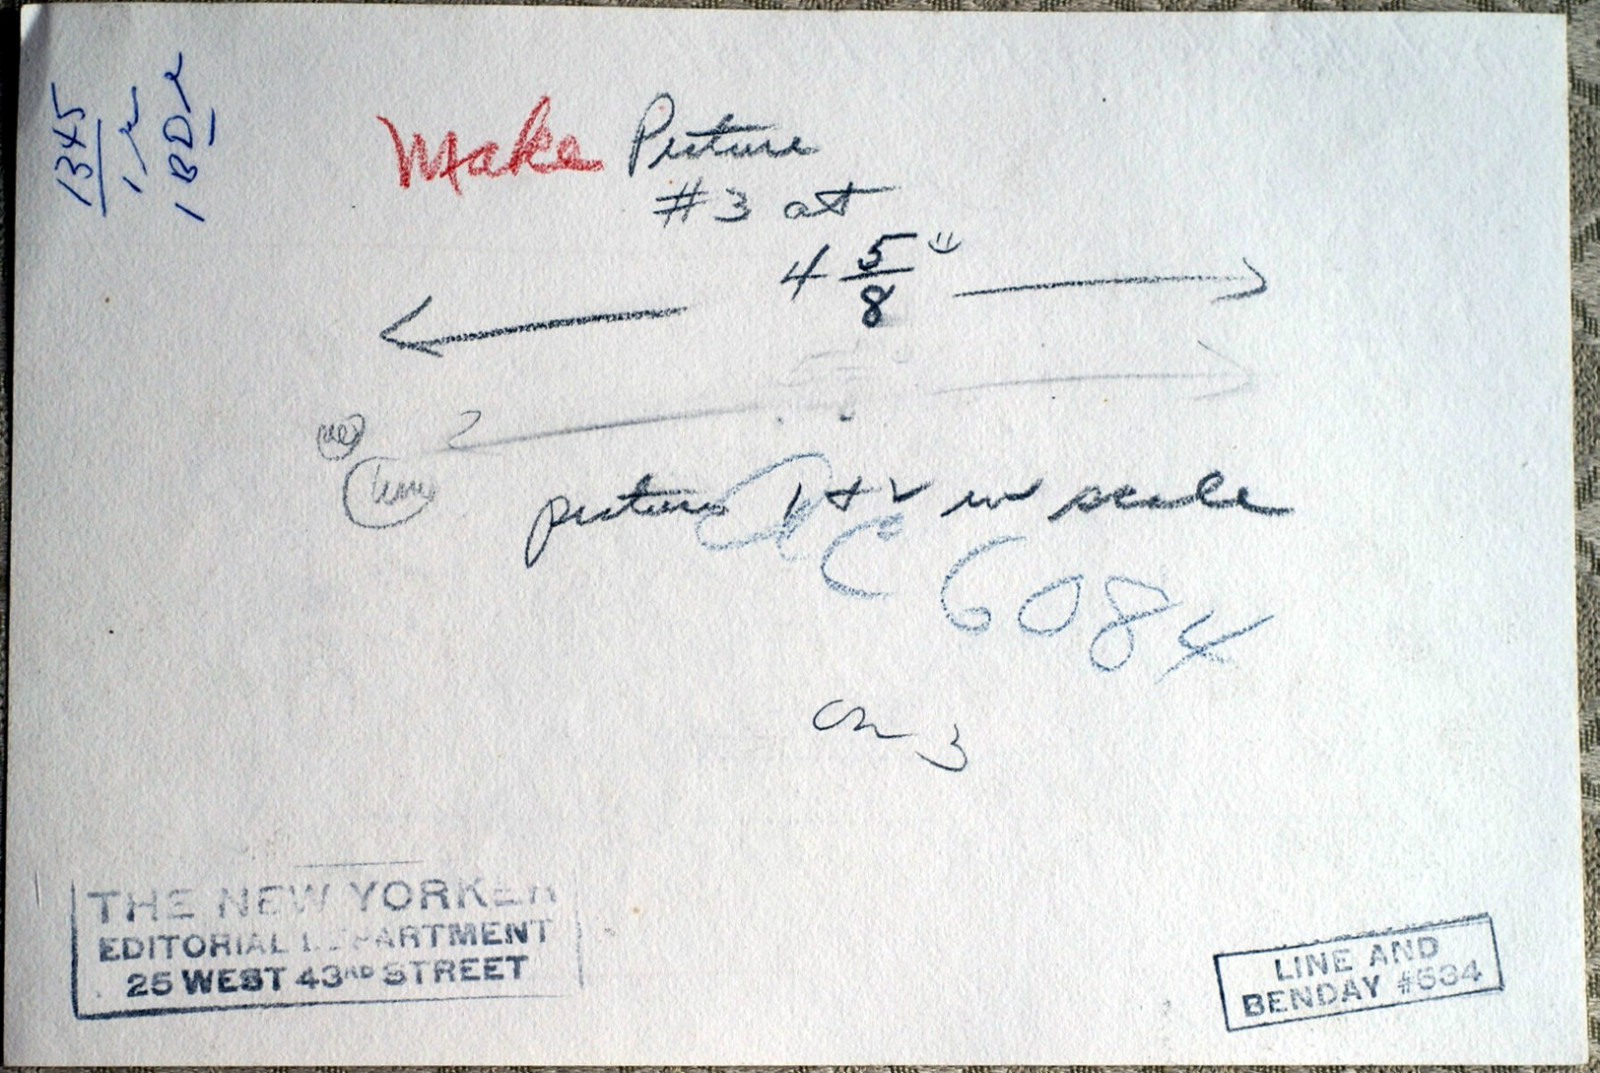 1345
1
1 BD
Make Picture
#3 at
4 5/8"
picture 1 + 2 in scale
C 6084
on 3
THE NEW YORKER
EDITORIAL DEPARTMENT
25 WEST 43RD STREET
LINE AND
BENDAY #534